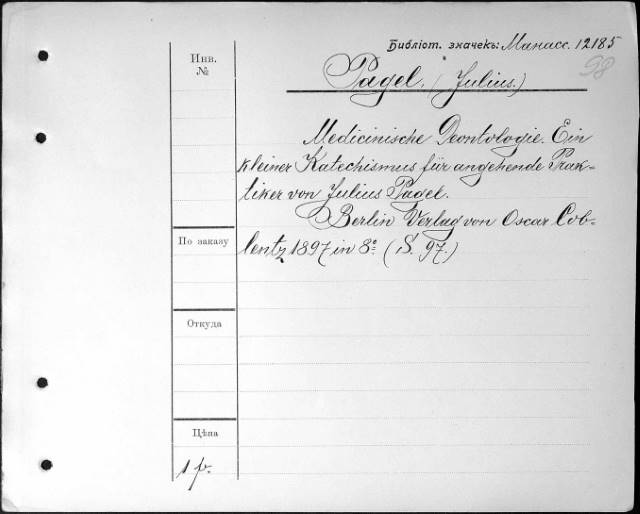 Библіот. значекъ: Манасс. 12185
98
Инв.
№
Pagel. (Julius.)
Medicinische Deontologie. Ein
kleiner Katechismus für angehende Prak-
tiker von Julius Pagel.
Berlin Verlag von Oscar Cob-
lentz 1897 in 8º (S. 97.)
По заказу
Откуда
Цѣна
1 р.